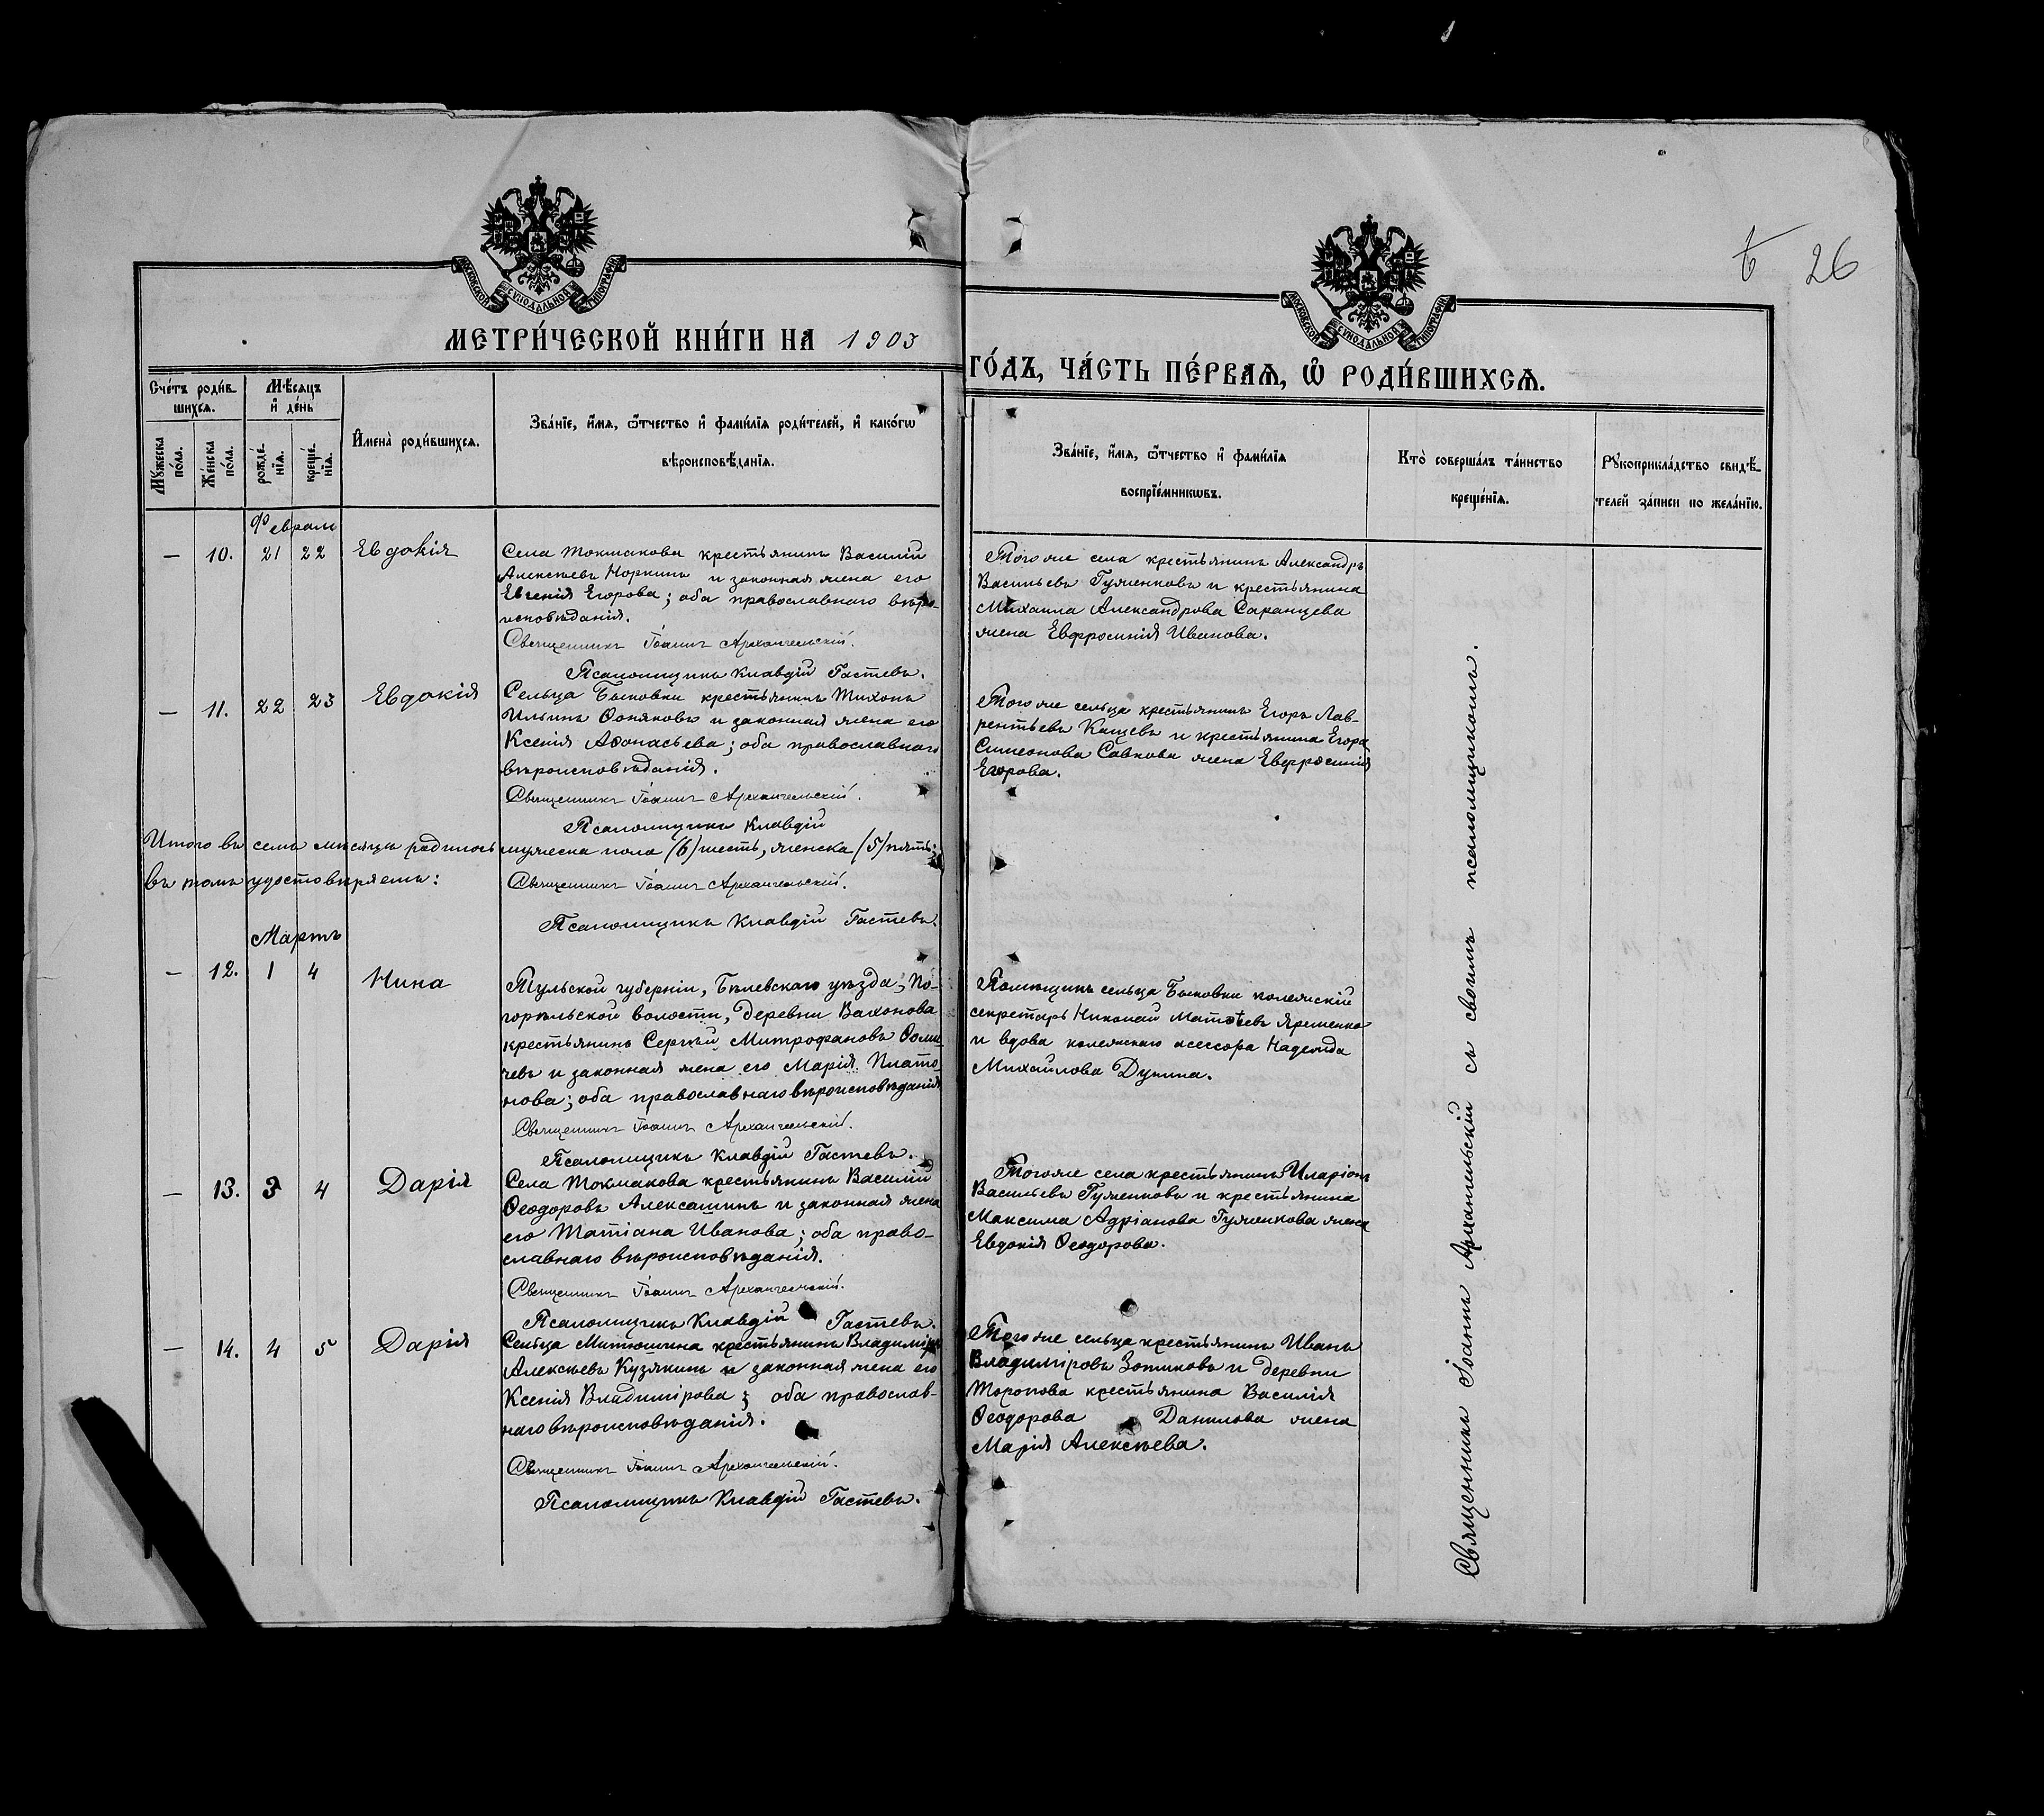 26
МОСКОВСКОЙ СѴНОДАЛЬНОЙ ТИПОГРАФІИ
МОСКОВСКОЙ СѴНОДАЛЬНОЙ ТИПОГРАФІИ
МЕТРИ́ЧЕСКОЙ КНИ́ГИ НА 1903
ГО́ДЪ, ЧА́СТЬ ПЕ́РВАѦ, Ѽ РОДИ́ВШИХСѦ.
Сче́тъ роди́в-
шихсѧ.
Мꙋ́жеска
по́ла.
Же́нска
по́ла.
Мѣ́сѧцъ
и҆ де́нь
рожде́-
нїѧ.
креще́-
нїѧ.
И҆мена̀ роди́вшихсѧ.
Зва́нїе, и҆́мѧ, ѻ҆́тчество и҆ фами́лїѧ роди́телей, и҆ како́гѡ
вѣроисповѣ́данїѧ.
Зва́нїе, и҆́мѧ, ѻ҆́тчество и҆ фами́лїѧ
воспрїе́мникѡвъ.
Кто̀ соверша́лъ та́инство
креще́нїѧ.
Рꙋкоприкла́дство свидѣ́-
телей за́писи по жела́нїю.
Февраль
— 10. 21 22 Евдокія
Села Токмакова крестьянинъ Василій
Алексѣевъ Норкинъ и законная жена его
Евгенія Егорова; оба православнаго вѣро-
исповѣданія.
Священникъ Іоаннъ Архангельскій.
Псаломщикъ Клавдій Гастевъ.
Того же села крестьянинъ Александръ
Васильевъ Гуженковъ и крестьянина
Михаила Александрова Саранцева
жена Евфросинія Иванова.
— 11. 22 23 Евдокія
Сельца Быковки крестьянинъ Тихонъ
Ильинъ и законная жена его
Ксенія Аѳонасьева; оба православнаго
вѣроисповѣданія.
Священникъ Іоаннъ Архангельскій.
Псаломщикъ Клавдій
Того же сельца крестьянинъ Егоръ Лав-
рентьевъ Кащевъ и крестьянина Егора
Симеонова Савкова жена Евфросинія
Егорова.
Итого въ семъ мѣсяцѣ родилось мужеска пола (6) шесть, женска (5) пять;
въ томъ удостовѣряемъ:
Священникъ Іоаннъ Архангельскій.
Псаломщикъ Клавдій Гастевъ.
Мартъ
— 12. 1 4 Нина
Тульской губерніи, Бѣлевскаго уѣзда, По-
горѣльской волости, деревни Вахонова
крестьянинъ Сергѣй Митрофановъ Ѳоми-
чевъ и законная жена его Марія Плато-
нова; оба православнаго вѣроисповѣданія
Священникъ Іоаннъ Архангельскій.
Псаломщикъ Клавдій Гастевъ.
Помѣщикъ сельца Быковки коллежскій
секретарь Николай Матѳеевъ Ярешенко
и вдова коллежскаго асессора Надежда
Михайлова Дунина.
— 13. 3 4 Дарія
Села Токмакова крестьянинъ Василій
Ѳеодоровъ Алексашинъ и законная жена
его Татіана Иванова; оба право-
славнаго вѣроисповѣданія.
Священникъ Іоаннъ Архангельскій.
Псаломщикъ Клавдій Гастевъ.
Того же села крестьянинъ Иларіонъ
Васильевъ Гуженковъ и крестьянина
Максима Адріанова Гуженкова жена
Евдокія Ѳеодорова.
— 14. 4 5 Дарія
Сельца Митюшина крестьянинъ Владиміръ
Алексѣевъ Кузякинъ и законная жена его
Ксенія Владимірова; оба православ-
наго вѣроисповѣданія.
Священникъ Іоаннъ Архангельскій.
Псаломщикъ Клавдій Гастевъ.
Того же сельца крестьянинъ Иванъ
Владиміровъ Зотиковъ и деревни
Торопова крестьянина Василія
Ѳеодорова Данилова жена
Марія Алексѣева.
Священникъ Іоаннъ Архангельскій съ своимъ псаломщикомъ.